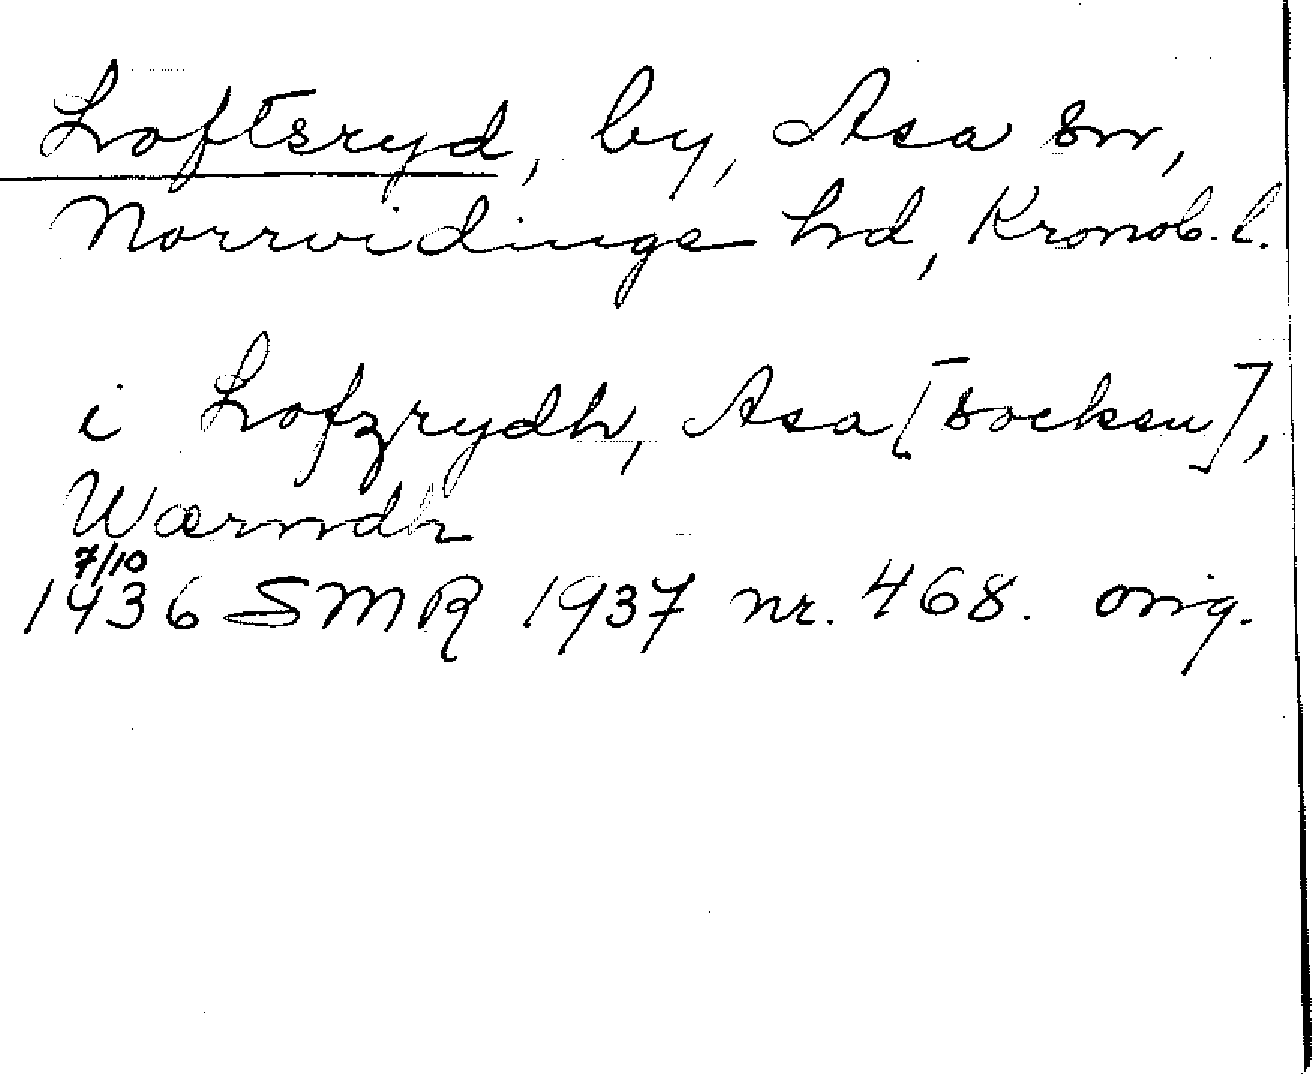 Loftsryd, by, Asa sn,
Norrvidinge hd, Kronob. l.
i Lofzrydh, Asa [socken],
Wærnndh
7/10
1436 SMR 1937 nr. 468. orig.